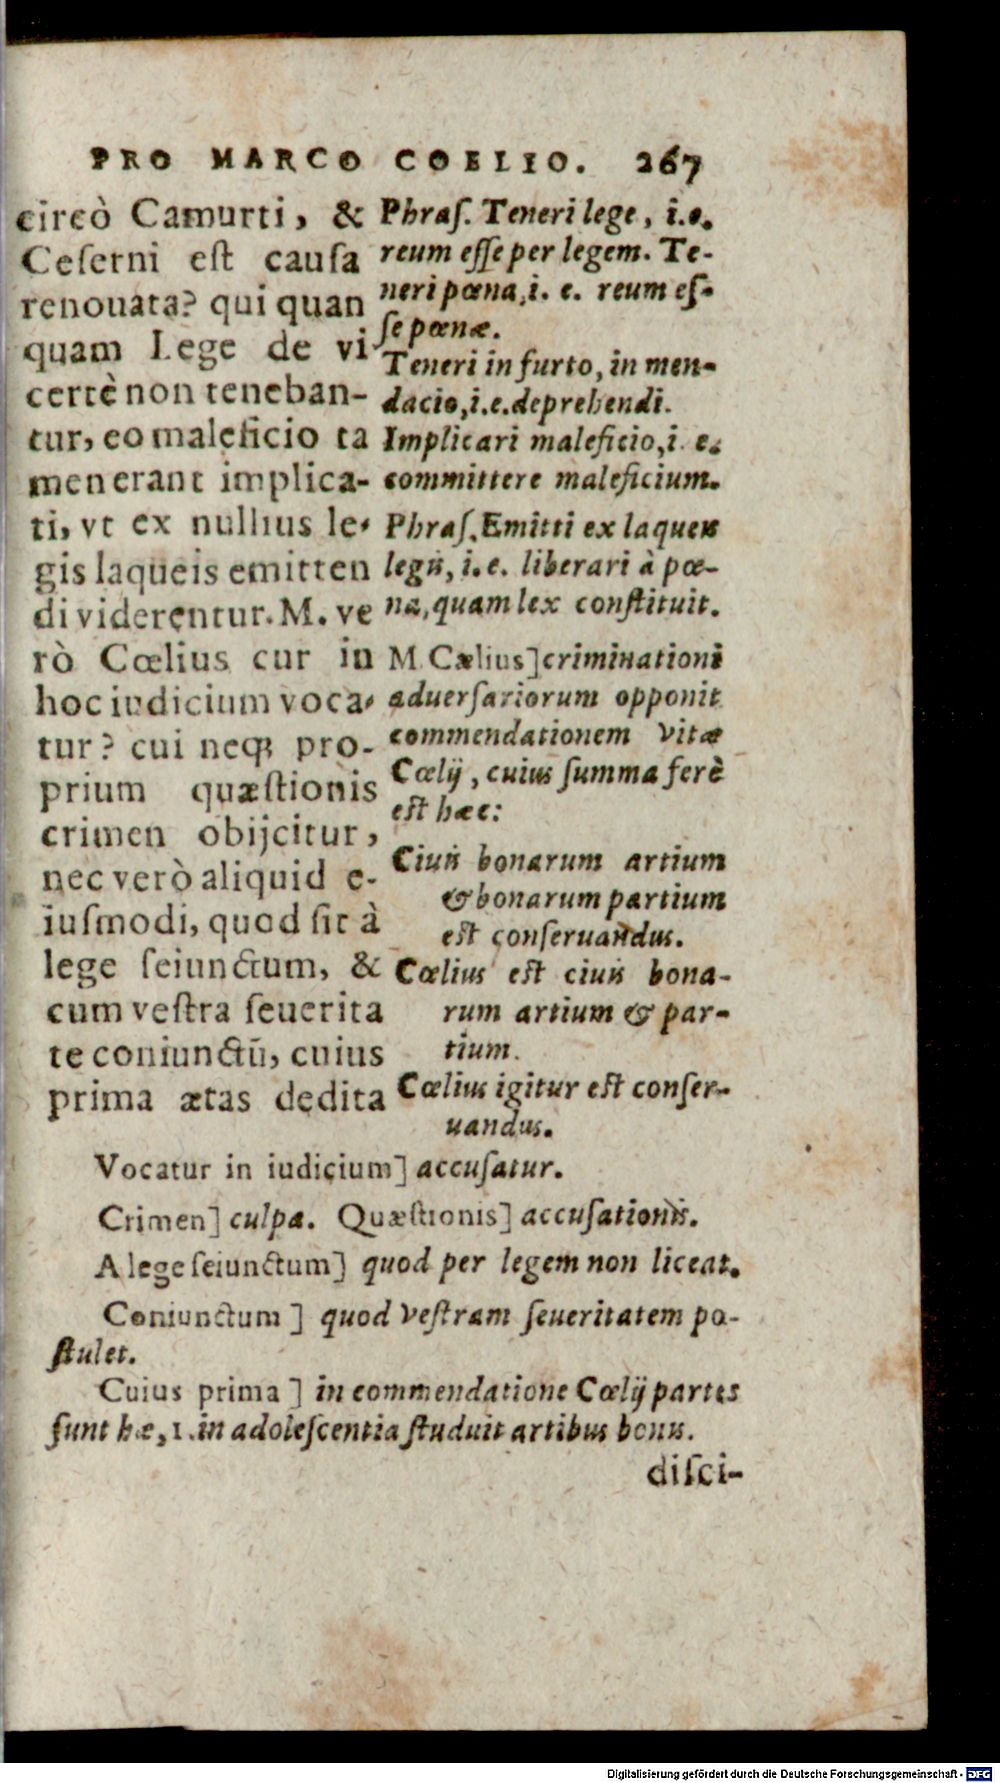 PRO MARCO COELIO. 267
circò Camurti, &
Ceſerni eſt cauſa
renouata? qui quan
quam Lege de vi
certè non teneban-
tur, eo maleficio ta
men erant implica-
ti, vt ex nullius le-
gis laqueis emitten
di viderentur. M. ve
rò Cœlius cur in
hoc iudicium voca-
tur? cui neqꝫ pro-
prium quæſtionis
crimen obijcitur,
nec verò aliquid e-
iuſmodi, quod ſit à
lege ſeiunctum, &
cum veſtra ſeuerita
te coniunctũ, cuius
prima ætas dedita
Phraſ. Teneri lege, i.e.
reum eſſe per legem. Te-
neri pœna, i. e. reum eſ-
ſe pœnæ.
Teneri in furto, in men-
dacio, i.e. deprehendi.
Implicari maleficio, i. e.
committere maleficium.
Phraſ. Emitti ex laqueis
legis, i. e. liberari à pœ-
na, quam lex conſtituit.
M. Cælius] criminationi
aduerſariorum opponit
commendationem vitæ
Cœlij, cuius ſumma ferè
eſt hæc:
Ciuis bonarum artium
& bonarum partium
eſt conſeruandus.
Cœlius eſt ciuis bona-
rum artium & par-
tium.
Cœlius igitur eſt conſer-
uandus.
Vocatur in iudicium] accuſatur.
Crimen] culpa. Quæſtionis] accuſationis.
A lege ſeiunctum] quod per legem non liceat.
Coniunctum] quod veſtram ſeueritatem po-
ſtulet.
Cuius prima] in commendatione Cœlij partes
ſunt hæ, 1. in adoleſcentia ſtuduit artibus bonis.
diſci-
Digitalisierung gefördert durch die Deutsche Forschungsgemeinschaft - DFG